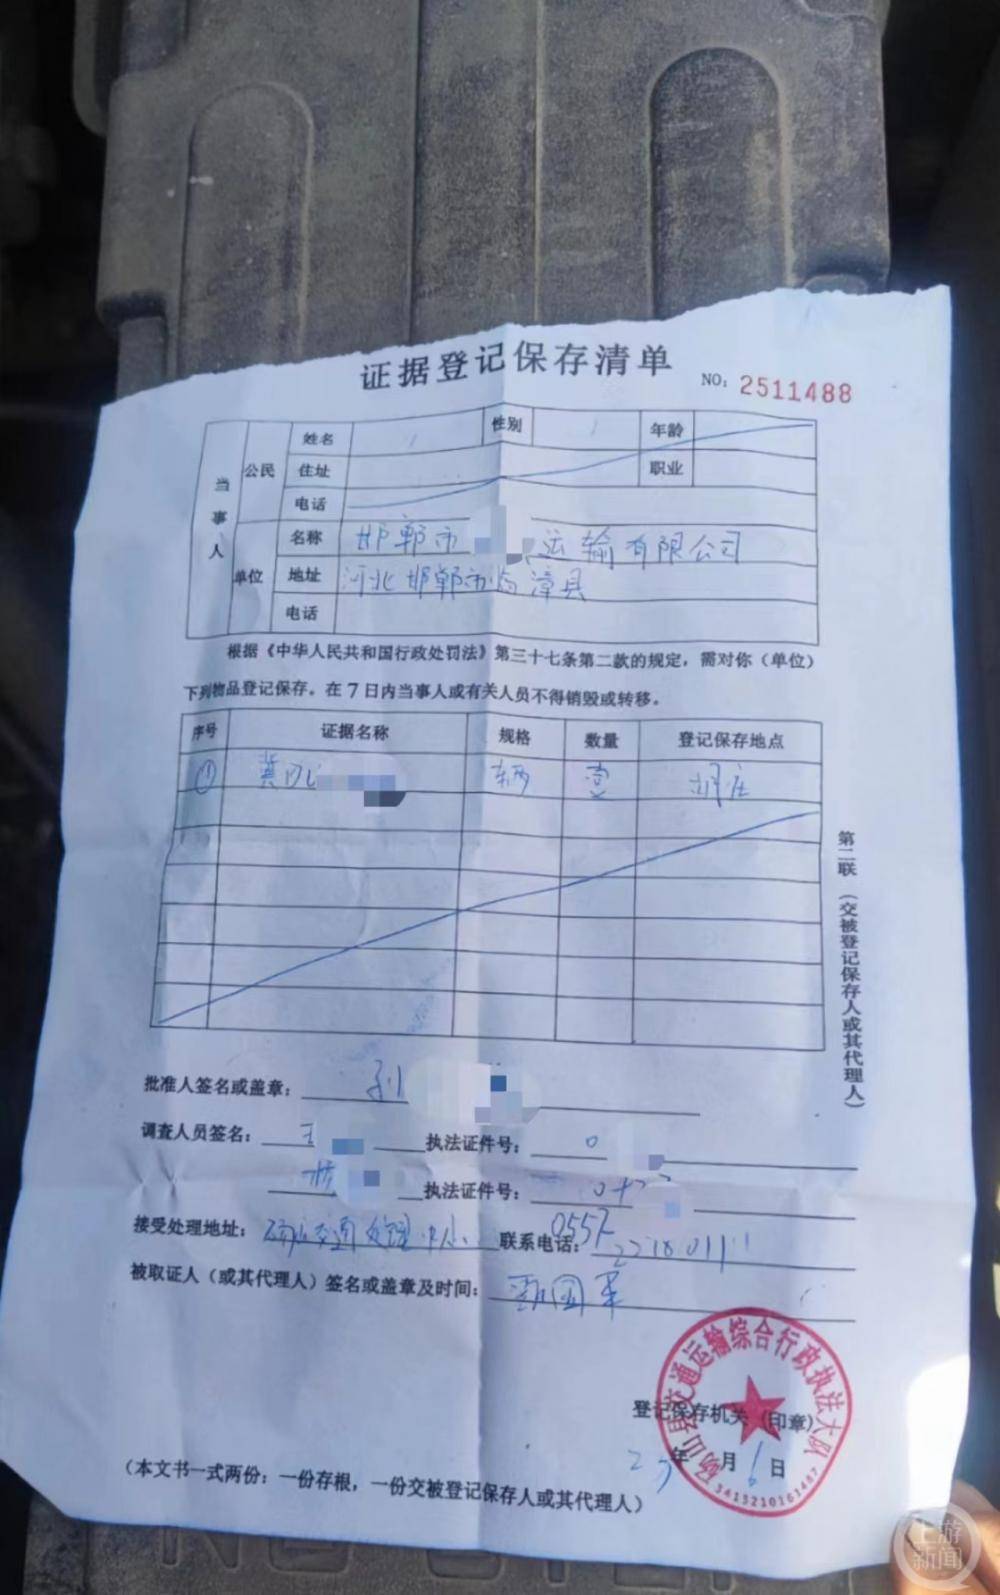 证据登记保存清单
NO: 2511488
当事人
公民
姓名
性别
年龄
住址
职业
电话
单位
名称 邯郸市 运输有限公司
地址 河北邯郸市临漳县
电话
根据《中华人民共和国行政处罚法》第三十七条第二款的规定，需对你（单位）
下列物品登记保存。在7日内当事人或有关人员不得销毁或转移。
序号 证据名称 规格 数量 登记保存地点
① 冀 辆 壹
第二联（交被登记保存人或其代理人）
批准人签名或盖章：
调查人员签名： 王 执法证件号： 0
执法证件号：
接受处理地址： 砀山交通处理中心 联系电话： 0557
被取证人（或其代理人）签名或盖章及时间：
登记保存机关（印章）
年 月 6 日
砀山县交通运输综合行政执法大队
3415210161487
（本文书一式两份：一份存根，一份交被登记保存人或其代理人）
上游新闻